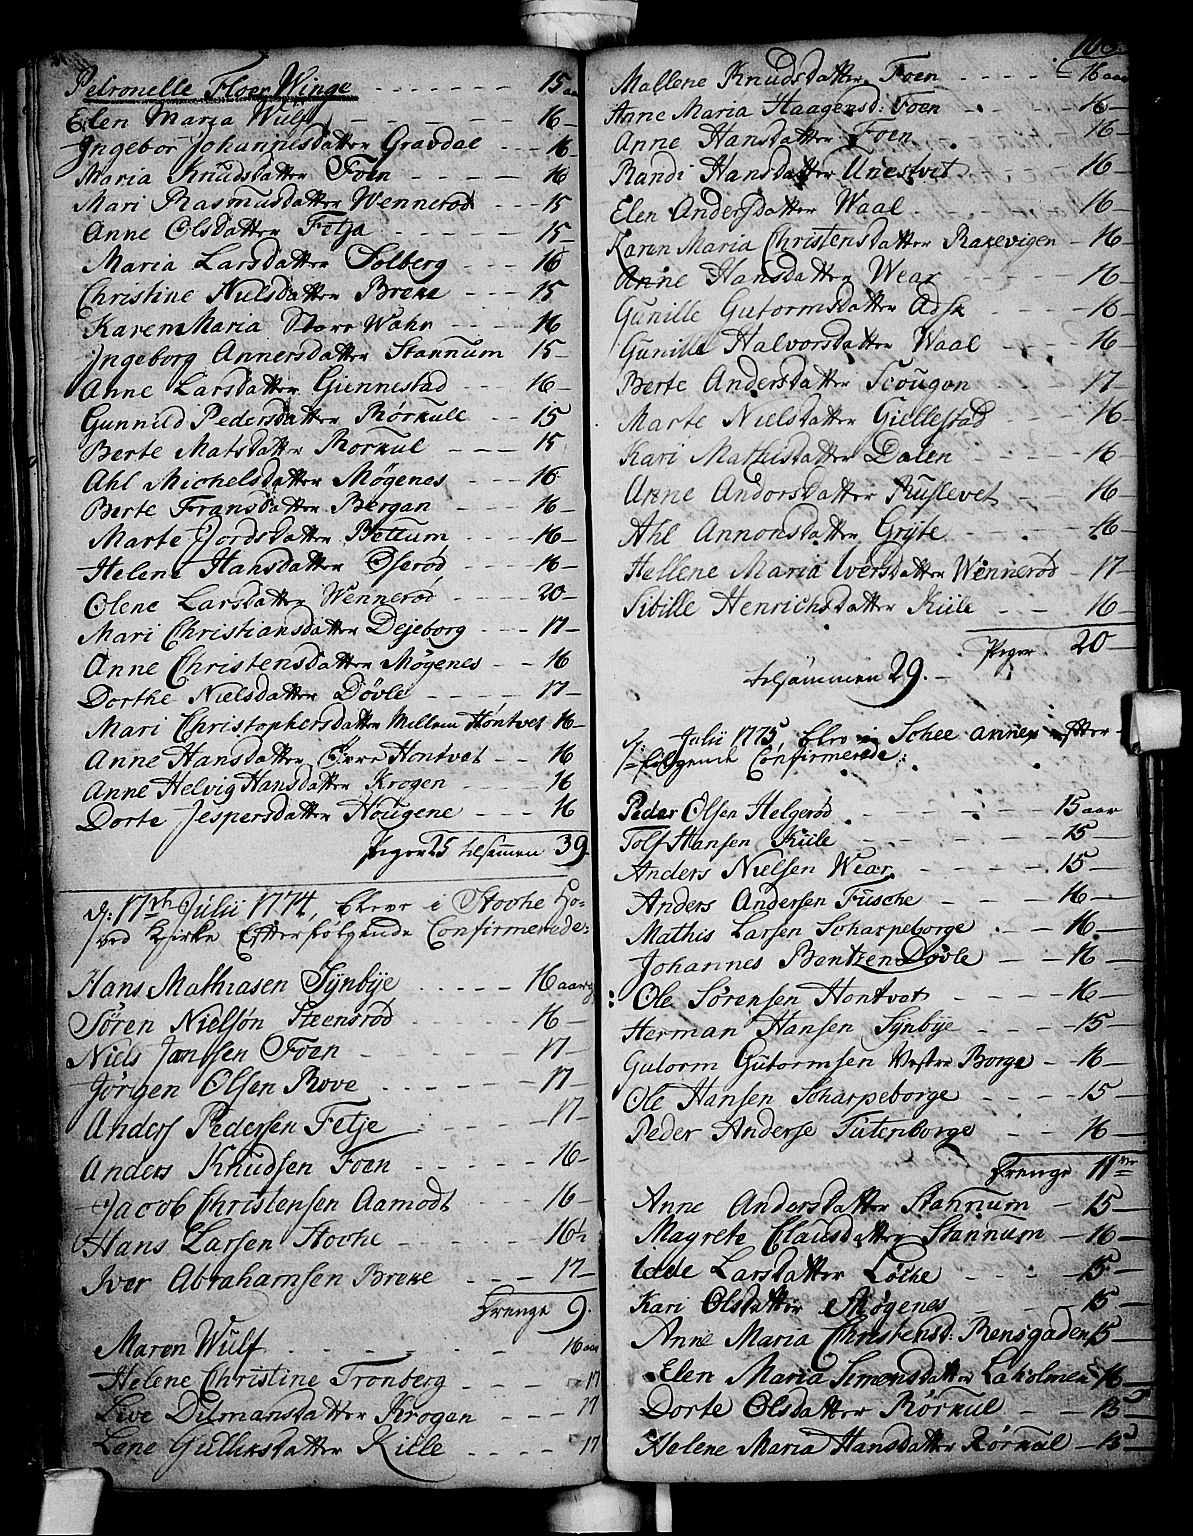 Petronelle Floer Winge 15 aar
Elen Maria Wulf 16
Ingebor Johannesdatter Gravdal 16
Maria Knudsdatter Foen 16
Mari Rasmusdatter Wennerød 15
Anne Olsdatter Fetja 15
Maria Larsdatter Solberg 16
Christine Nielsdatter Breke 15
Karen Maria Wahr 16
Ingeborg Annersdatter Stannum 15
Anne Larsdatter Giennestad 16
Gunnild Pedersdatter Rørkull 15
Berte Matsdatter Rorkul 15
Ahl Michelsdatter Møgenes 16
Berte Fransdatter Bergan 16
Marte Jordsdatter Bettum 16
Helene Hansdatter Oserød 16
Olene Larsdatter Wennerød 20
Mari Christiansdatter Dejeborg 17
Anne Christensdatter Møgenes 16
Dorthe Nielsdatter Døvle 17
Mari Christophersdatter Mellem Hontvet 16
Anne Hansdatter Hontvet 16
Anne Helvig Hansdatter Krogen 16
Dorte Jespersdatter Hougene 16
Piger 25 tilsammen 39
d: 17de Julii 1774, bleve i Stokke Ho-
ved Kirke Efterfølgende Confirmerede:
Hans Mathiasen Synbye 16 aar
Søren Nielsøn Steensrod 16
Niels Janssen Foen 17
Jørgen Olsen Rove 17
Anders Pedersen Fetje 17
Anders Knudsen Foen 16
Jacob Christensen Aamodt 16
Hans Larsen Stokke 16½
Iver Abrahamsen Breke 17
Drenge 9.
Maren Wulf 16 aar
Helene Christine Tronberg 17
Live Ditmansdatter Krogen 17
Lene Gulliksdatter Kille 17
Mallene Knudsdatter Foen 16 aar
Anne Maria Haagensd: Foen 16
Anne Hansdatter Foen 16
Randi Hansdatter Unestvet 16
Elen Andersdatter Waal 16
Karen Maria Christensdatter Rakevigen 16
Anne Hansdatter Wear 16
Gunille Gutormsdatter Adsk 16
Gunille Halvorsdatter Waal 16
Berte Andersdatter Scougen 17
Marte Nielsdatter Giellestad 16
Kari Mathisdatter Dalen 16
Anne Andorsdatter Ruslevet 16
Ahl Annonsdatter Gryte 16
Hellene Maria Iversdatter Wennerød 17
Sibille Henrichsdatter Kiile 16
Piger 20
tilsammen 29.
Julii 1775, blev Schee annex efter-
følgende Confirmerede:
Peder Olsen Helgerød 15 aar
Tolf Hansen Kiile 15
Anders Nielsen Wear 15
Anders Andersen Fusche 16
Mathis Larsen Scharpeborge 16
Johannes Bentzen Døvle 16
Ole Sørensen Hontvet 16
Herman Hansen Synbye 15
Gutorm Gutormsen Vestre Borge 16
Ole Hansen Scharpeborge 15
Peder Anderse Tutenborge 16
Drenge 11
Anne Andersdatter Stannum 15
Magrete Clausdatter Stannum 16
Idde Larsdatter Løcke 15
Kari Olsdatter Møgenes 15
Anne Maria Christensd. Rensgaden 15
Elen Maria Simensdatter Laholmen 16
Dorte Olsdatter Rørkul 15
Helene Maria Hansdatter Rørkul 15